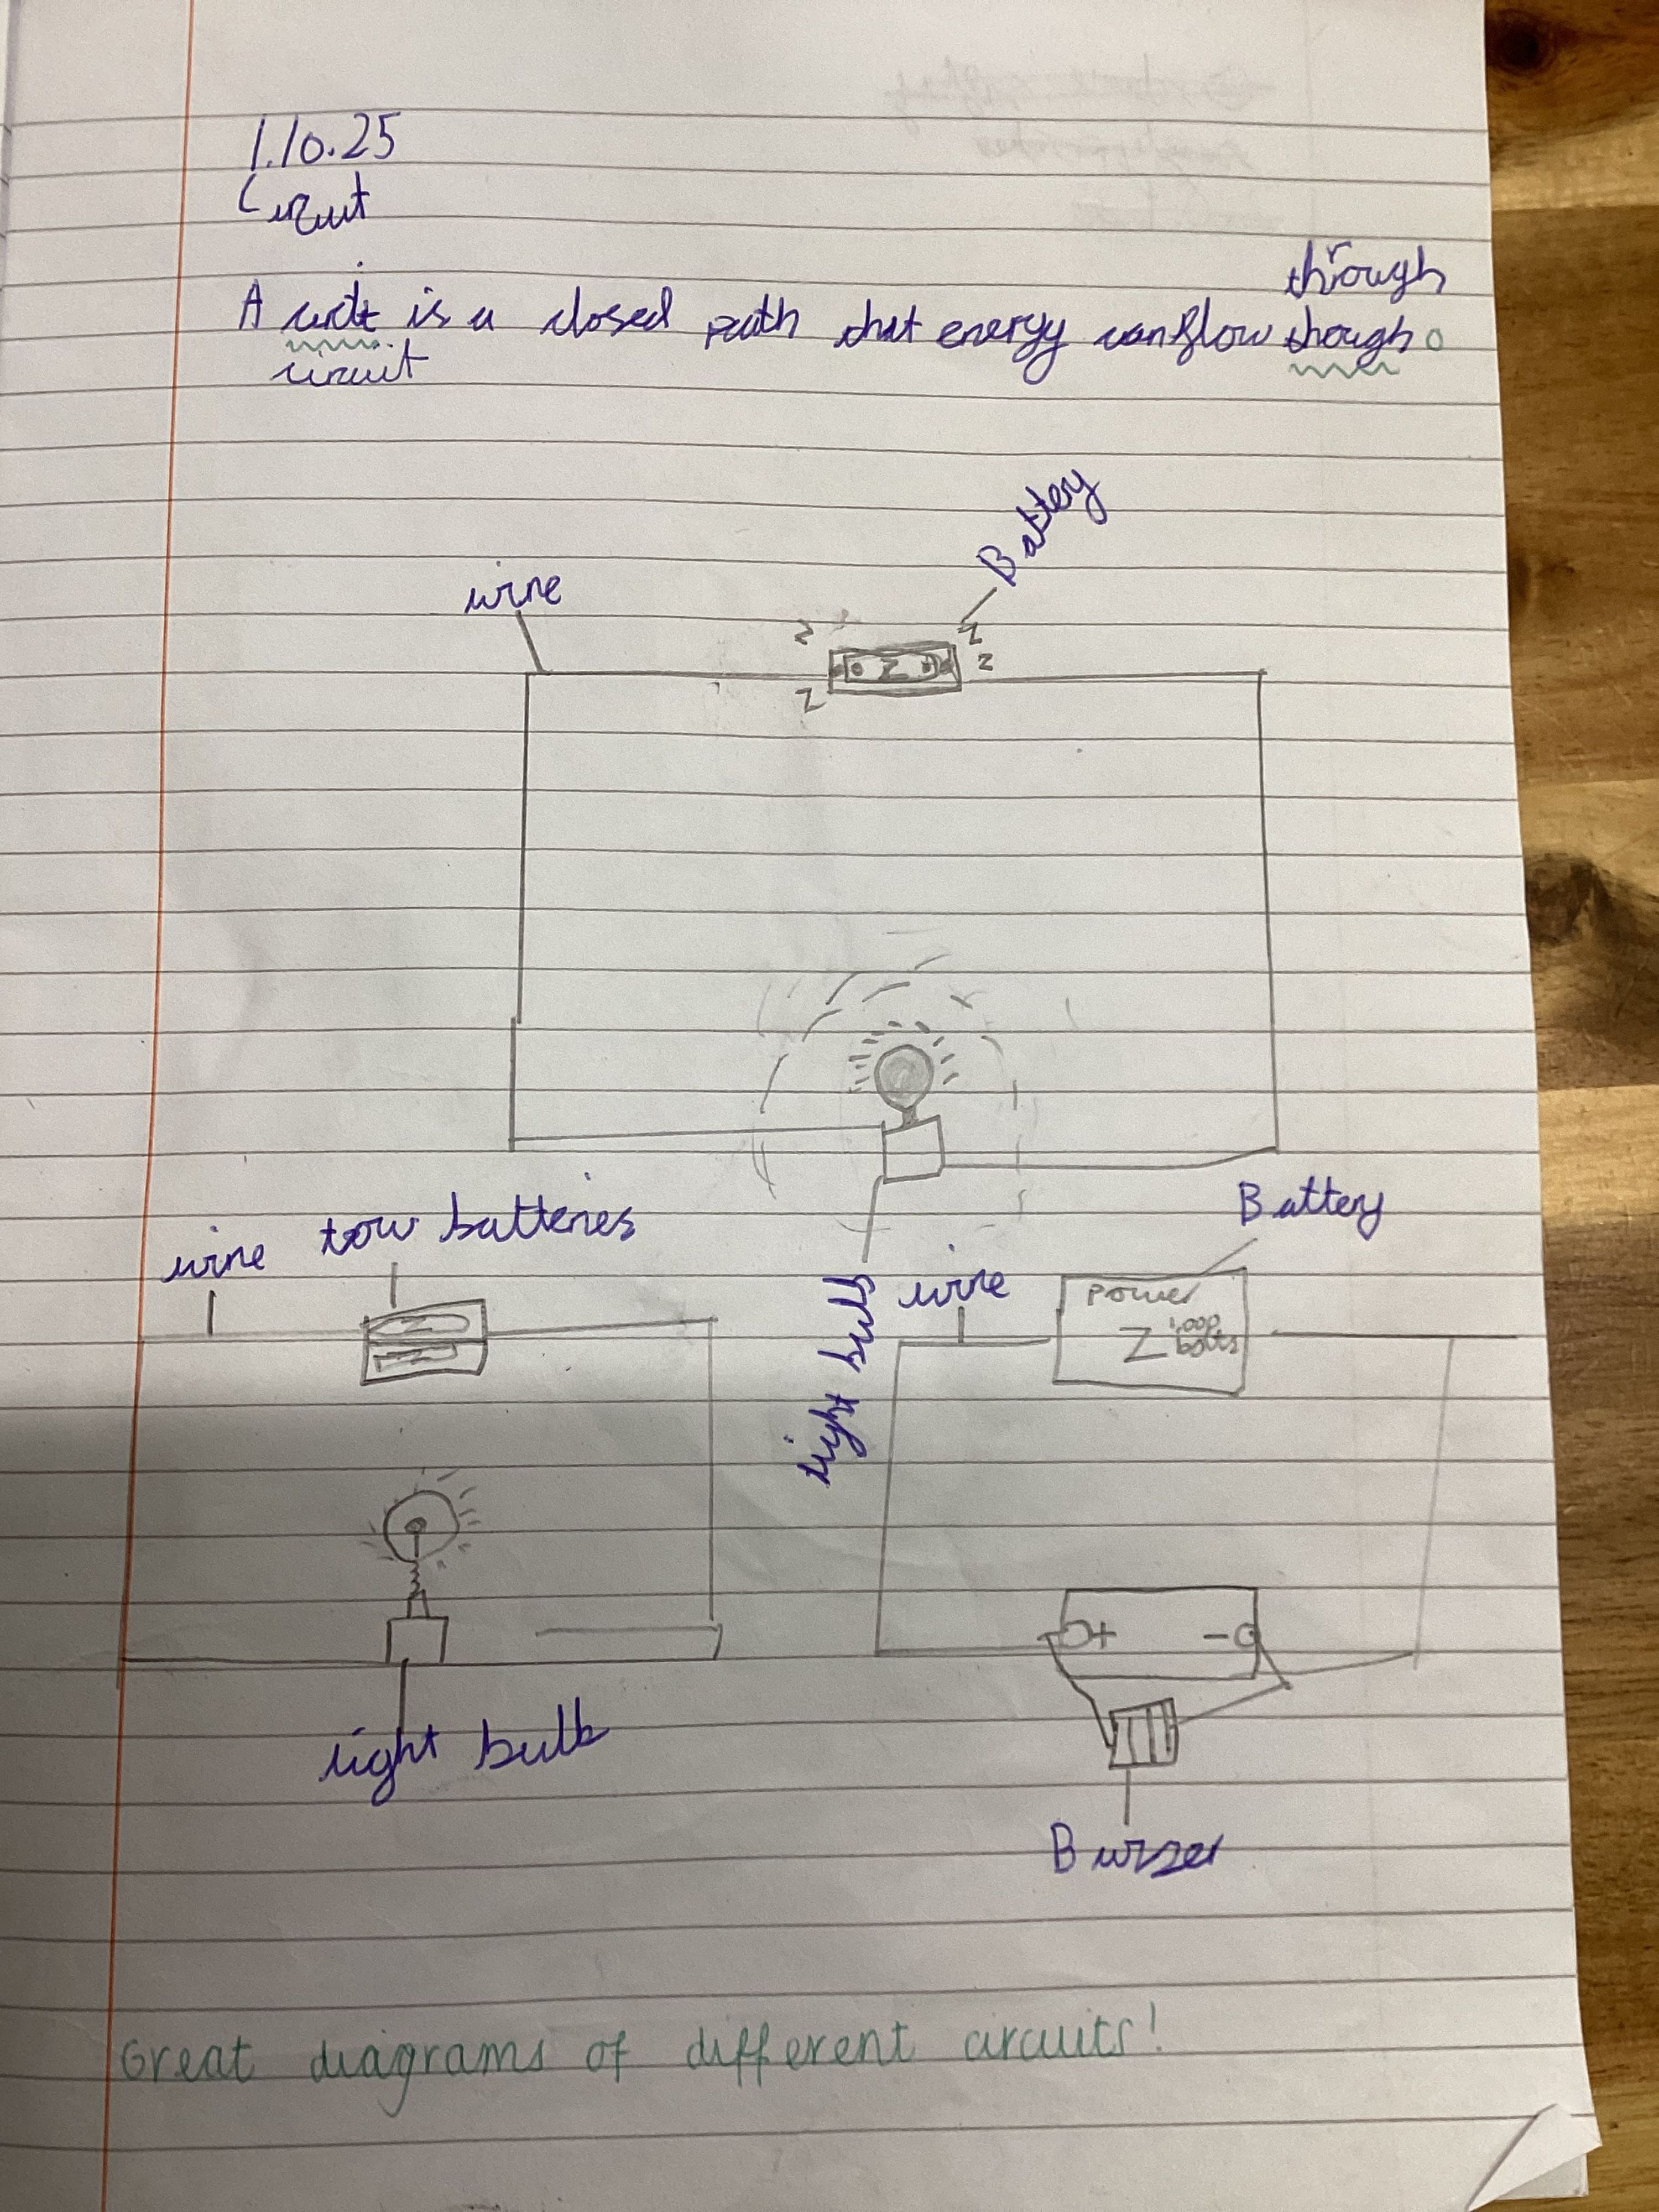 1.10.25
Circuit
through
A circite is a closed path that energy can flow though
circuit
Battery
wire
Battery
tow batteries
wire
wire
light bulb
power
1,000
bolts
+ -
light bulb
Buzzer
Great diagrams of different circuits!